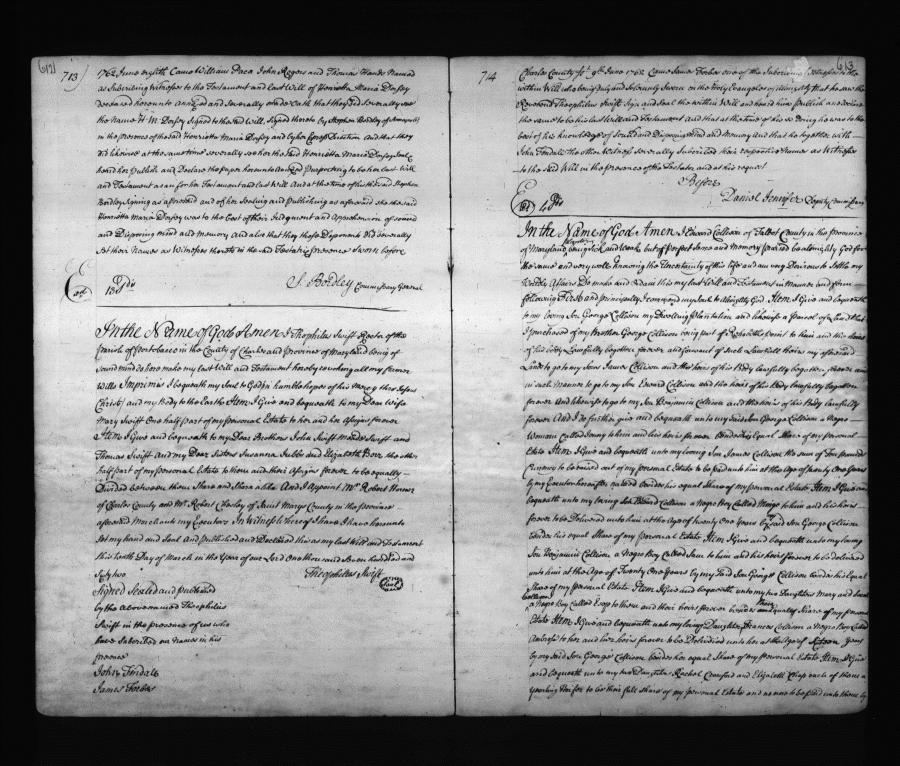 612
713
1762 June eighth Came William Paca John Rogers and Thomas Hands Named
as Subscribing Witnesses to the Testament and Last Will of Henrietta Maria Dorsey
Deceased hereunto Annexed and severally made Oath that they did severally see
the Name H: M: Dorsey Signed to the said Will, Signed thereto by Stephen Bordley of Annapolis
in the presence of the said Henrietta Maria Dorsey and by her Express Direction and that they
did likewise at the same time severally see her the said Henrietta Maria Dorsey Seal
heard her Publish and Declare the paper hereunto annexed Purporting to be her Last Will
and Testament as and for her Testament and last Will and at the time of his the said Stephen
Bordley Signing as aforesaid and of her Sealing and Publishing as aforesaid she the said
Henrietta Maria Dorsey was to the best of their Judgment and Apprehension of sound
and Disposing mind and Memory And also that they these Deponents Did severally
Set their Names as Witnesses thereto in the said Testatrix presence sworn before
S. Bordley Commissary General
In the Name of God Amen I Theophilus Swift Rector of the
Parish of Portobacco in the County of Charles and Province of Maryland being of
sound mind do here make my last Will and Testament hereby revoking all my former
Wills Imprimis I bequeath my Soul to God in humble hopes of his Mercy thro Jesus
Christ and my Body to the Earth Item I Give and bequeath to my Dear Wife
Mary Swift One half part of my personal Estate to her and her Assigns forever
Item I Give and bequeath to my Dear Brothers John Swift Meade Swift and
Thomas Swift and my Dear Sisters Susanna Tubbs and Elizabeth the other
half part of my personal Estate to them and their Assigns forever to be equally
Divided between them Share and Share alike And I Appoint Mr. Robert Horner
of Charles County and Mr. Robert Chesley of Saint Marys County in the province
aforesaid Merchants my Executors In Witness hereof I have hereunto
set my hand and Seal and Published and Declared this as my last Will and Testament
this tenth Day of March in the Year of our Lord One thousand Seven hundred and
Sixty two
Theophilus Swift
Seal
Signed Sealed and published
by the abovenamed Theophilus
Swift in the presence of us who
have Subscribed our Names in his
presence
John Tindall
James Forbes
613
714
Charles County sct. 9th June 1762 Came James Forbes one of the Subscribing Witnesses to the
within Will who being duly and solemnly Sworn on the Holy Evangels of Almighty God that he saw the
Reverend Theophilus Swift Sign and Seal the within Will and heard him publish and declare
the same to be his last Will and Testament And that at the time of his so doing he was to the
best of his knowledge of sound and Disposing mind and Memory And that he together with
John Tindall the other Witness severally Subscribed their respective Names as Witnesses
to the said Will in the presence of the Testator and at his request
Before
Daniel Jenifer Deputy Commissary
In the Name of God Amen I Edward Collison of Talbot County in the province
of Maryland being Sick and Weak but of perfect Sense and Memory praised be almighty God for
the same and very well knowing the Uncertainty of this life and am very Desirous to settle my
Worldly Affairs Do make and Ordain this my last Will and Testament in Manner and form
following First and principally I commend my Soul to Almighty God Item I Give and bequeath
to my loving Son George Collison my Dwelling Plantation and likewise a parcel of Land that
I purchased of my Brother George Collison being part of point to him and the heirs
of his body Lawfully begotten forever and for want of such Lawfull heirs my aforesaid
Lands to go to my Son James Collison and the heirs of his Body lawfully begotten forever and
in such Manner to go to my Son Edward Collison and the heirs of his Body lawfully begotten
forever And likewise to go to my Son Benjamin Collison and the heirs of his Body lawfully
forever And I do further give and bequeath unto my said Son George Collison a Negro
Woman Called to him and his heirs forever besides his Equal Share of my personal
Estate Item I Give and bequeath unto my loving Son James Collison the sum of Ten pounds
Currency to be raised out of my personal Estate to be paid unto him at the Age of twenty One Years
by my Executor hereafter named besides his equal Share of my personal Estate Item I Give and
bequeath unto my loving Son Edward Collison a Negro Boy Called Mingo to him and his heirs
forever to be Delivered unto him at the Age of twenty One Years by said Son George Collison
besides his equal Share of my personal Estate Item I Give and bequeath unto my loving
Son Benjamin Collison a Negro Boy Called Sam to him and his heirs forever to be delivered
unto him at the Age of Twenty One Years by my said Son George Collison besides his Equal
Share of my personal Estate Item I Give and bequeath unto my two Daughters Mary and Sarah
Collison a Negro Boy Called Esop to them and their heirs forever besides their equal Share of my personal
Estate Item I Give and bequeath unto my loving Daughter Frances Collison a Negro Boy Called
Ambrose to her and her heirs forever to be Delivered unto her at the Age of Sixteen Years
by my said Son George Collison besides her equal Share of my personal Estate Item I Give
and bequeath unto my two Daughters Rachel Crawford and Elizabeth each of them a
Yearling Heifer to be their full Share of my personal Estate and no more to be paid unto them by